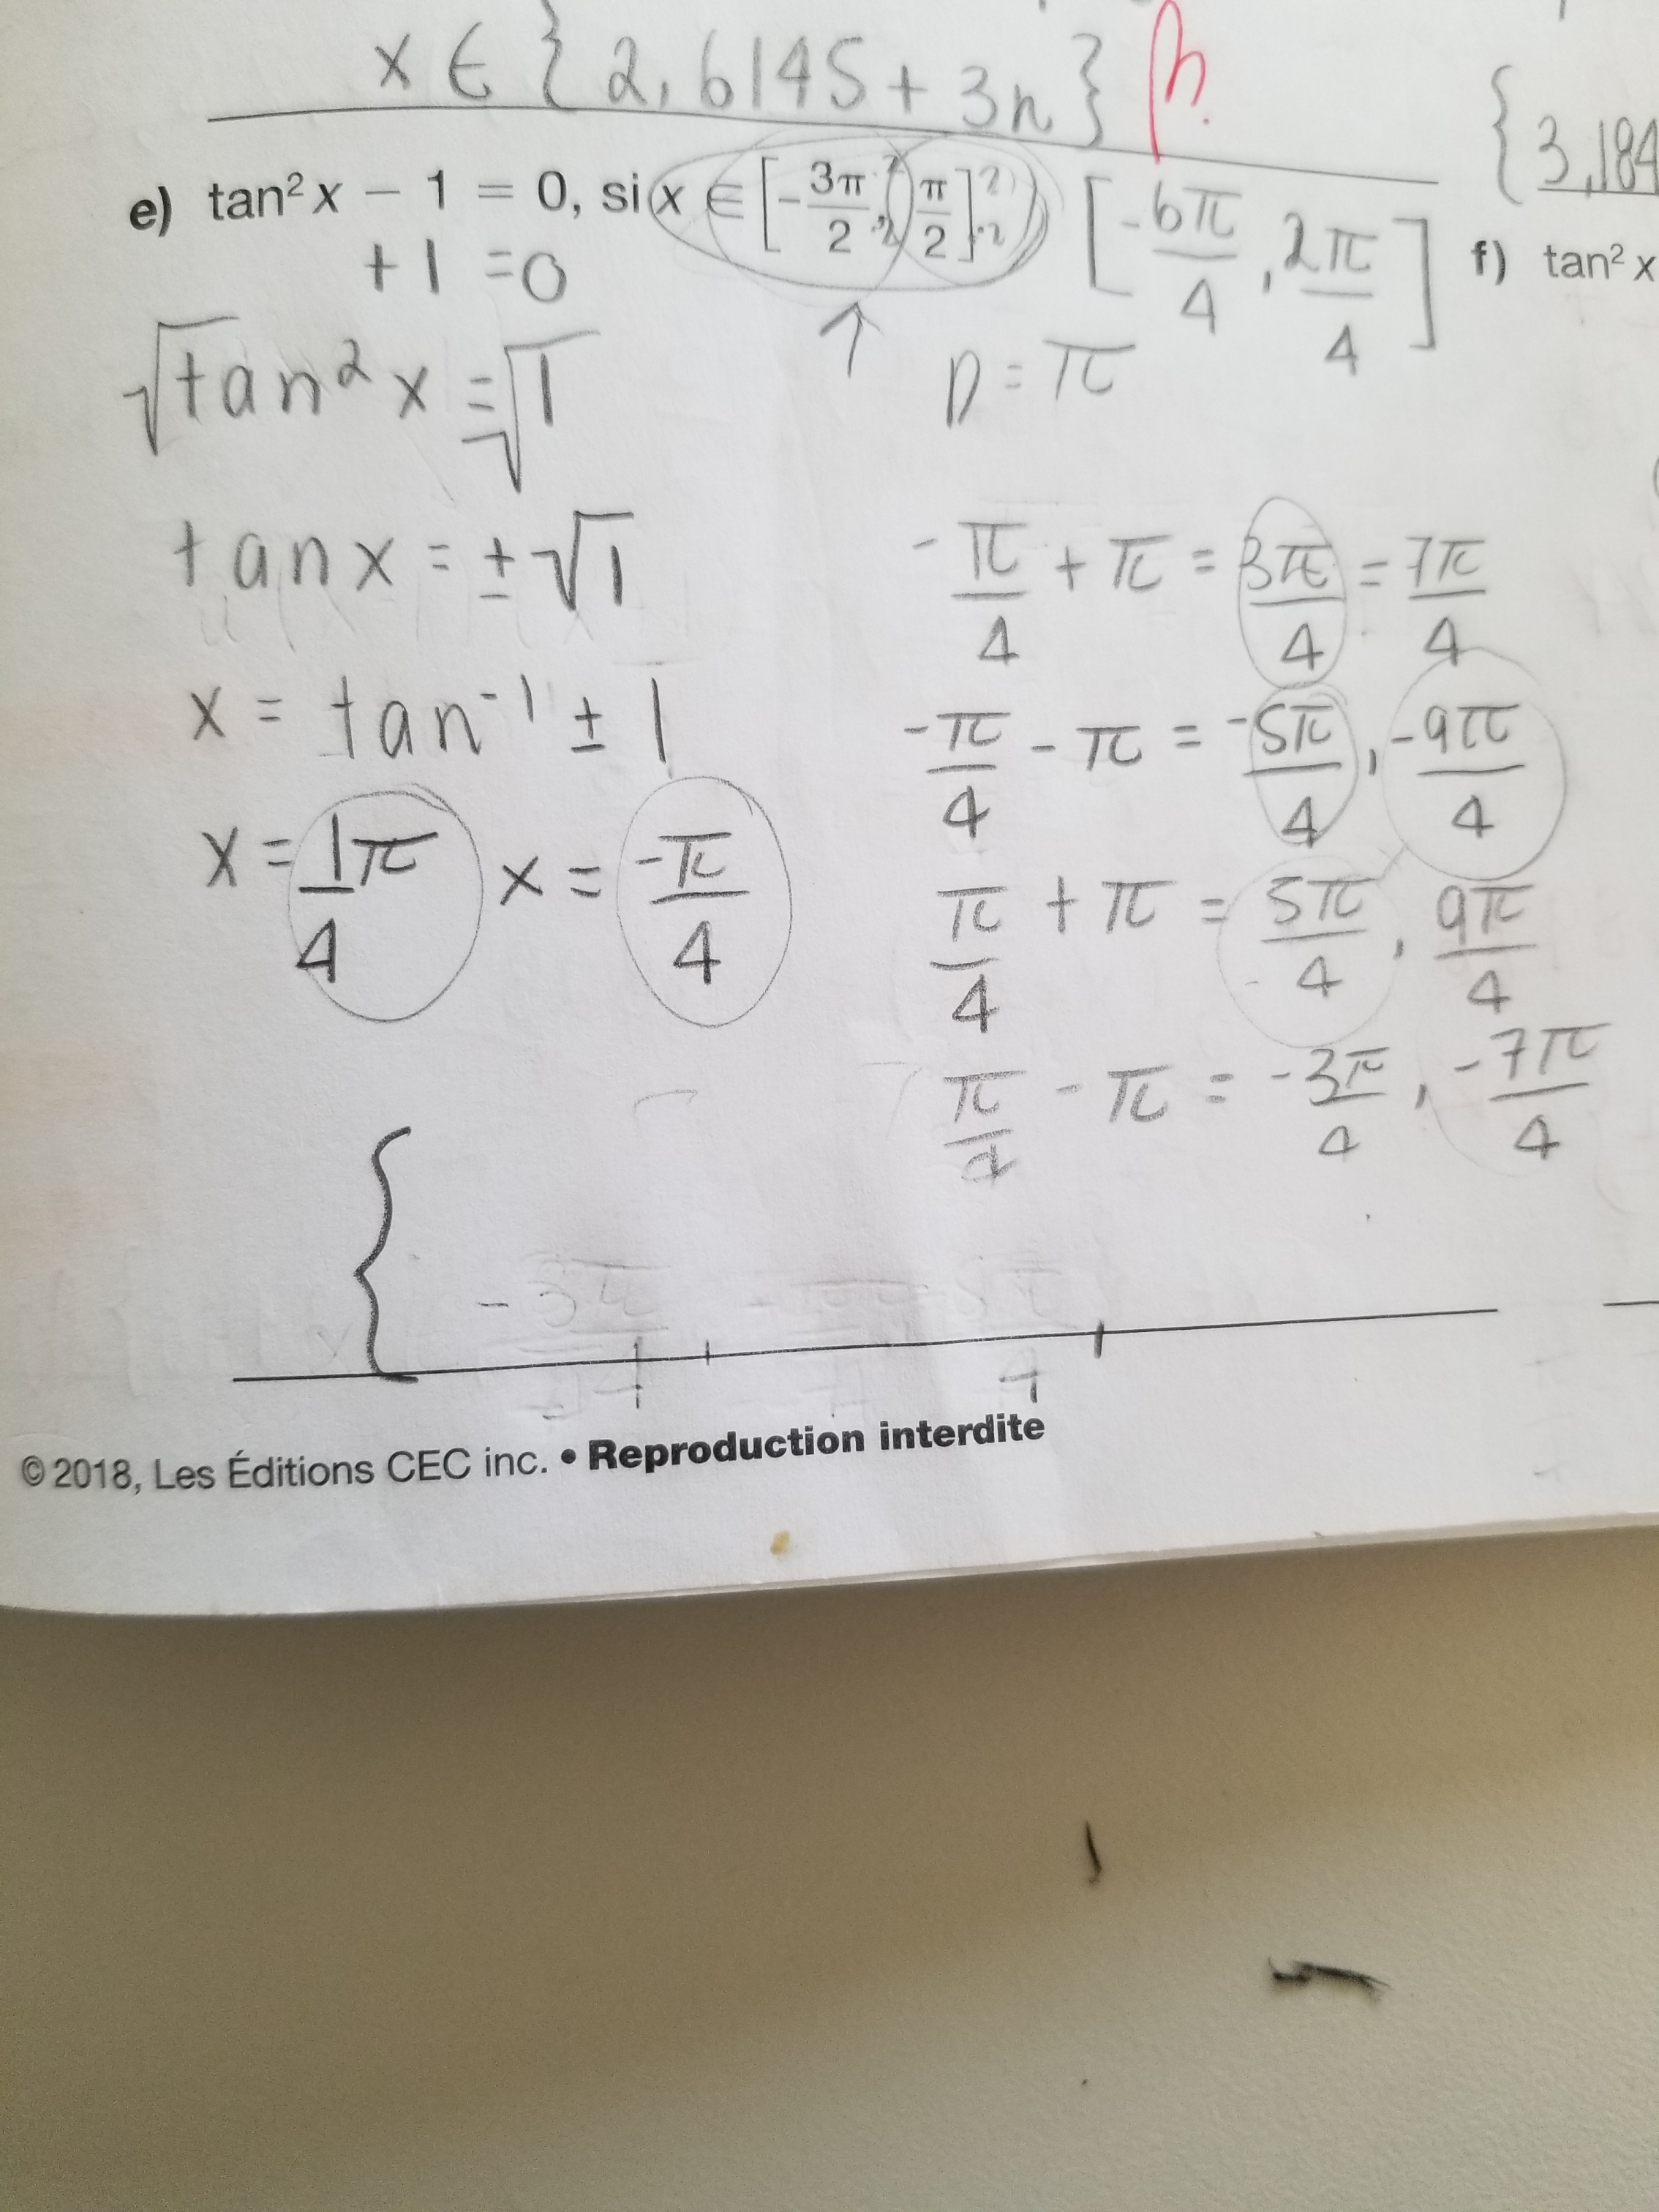 x ∈ { 2,6145 + 3n }
{ 3,184
e) tan² x − 1 = 0, si x ∈ [−3π/2, π/2]
[-6π/4, 2π/4]
f) tan² x
+1 =0
√tan² x = √1
p = π
tan x = ± √1
-π/4 + π = 3π/4 = 7π/4
x = tan⁻¹ ± 1
-π/4 - π = -5π/4, -9π/4
x = 1π/4 x = -π/4
π/4 + π = 5π/4, 9π/4
π/4 - π = -3π/4, -7π/4
{
© 2018, Les Éditions CEC inc. • Reproduction interdite